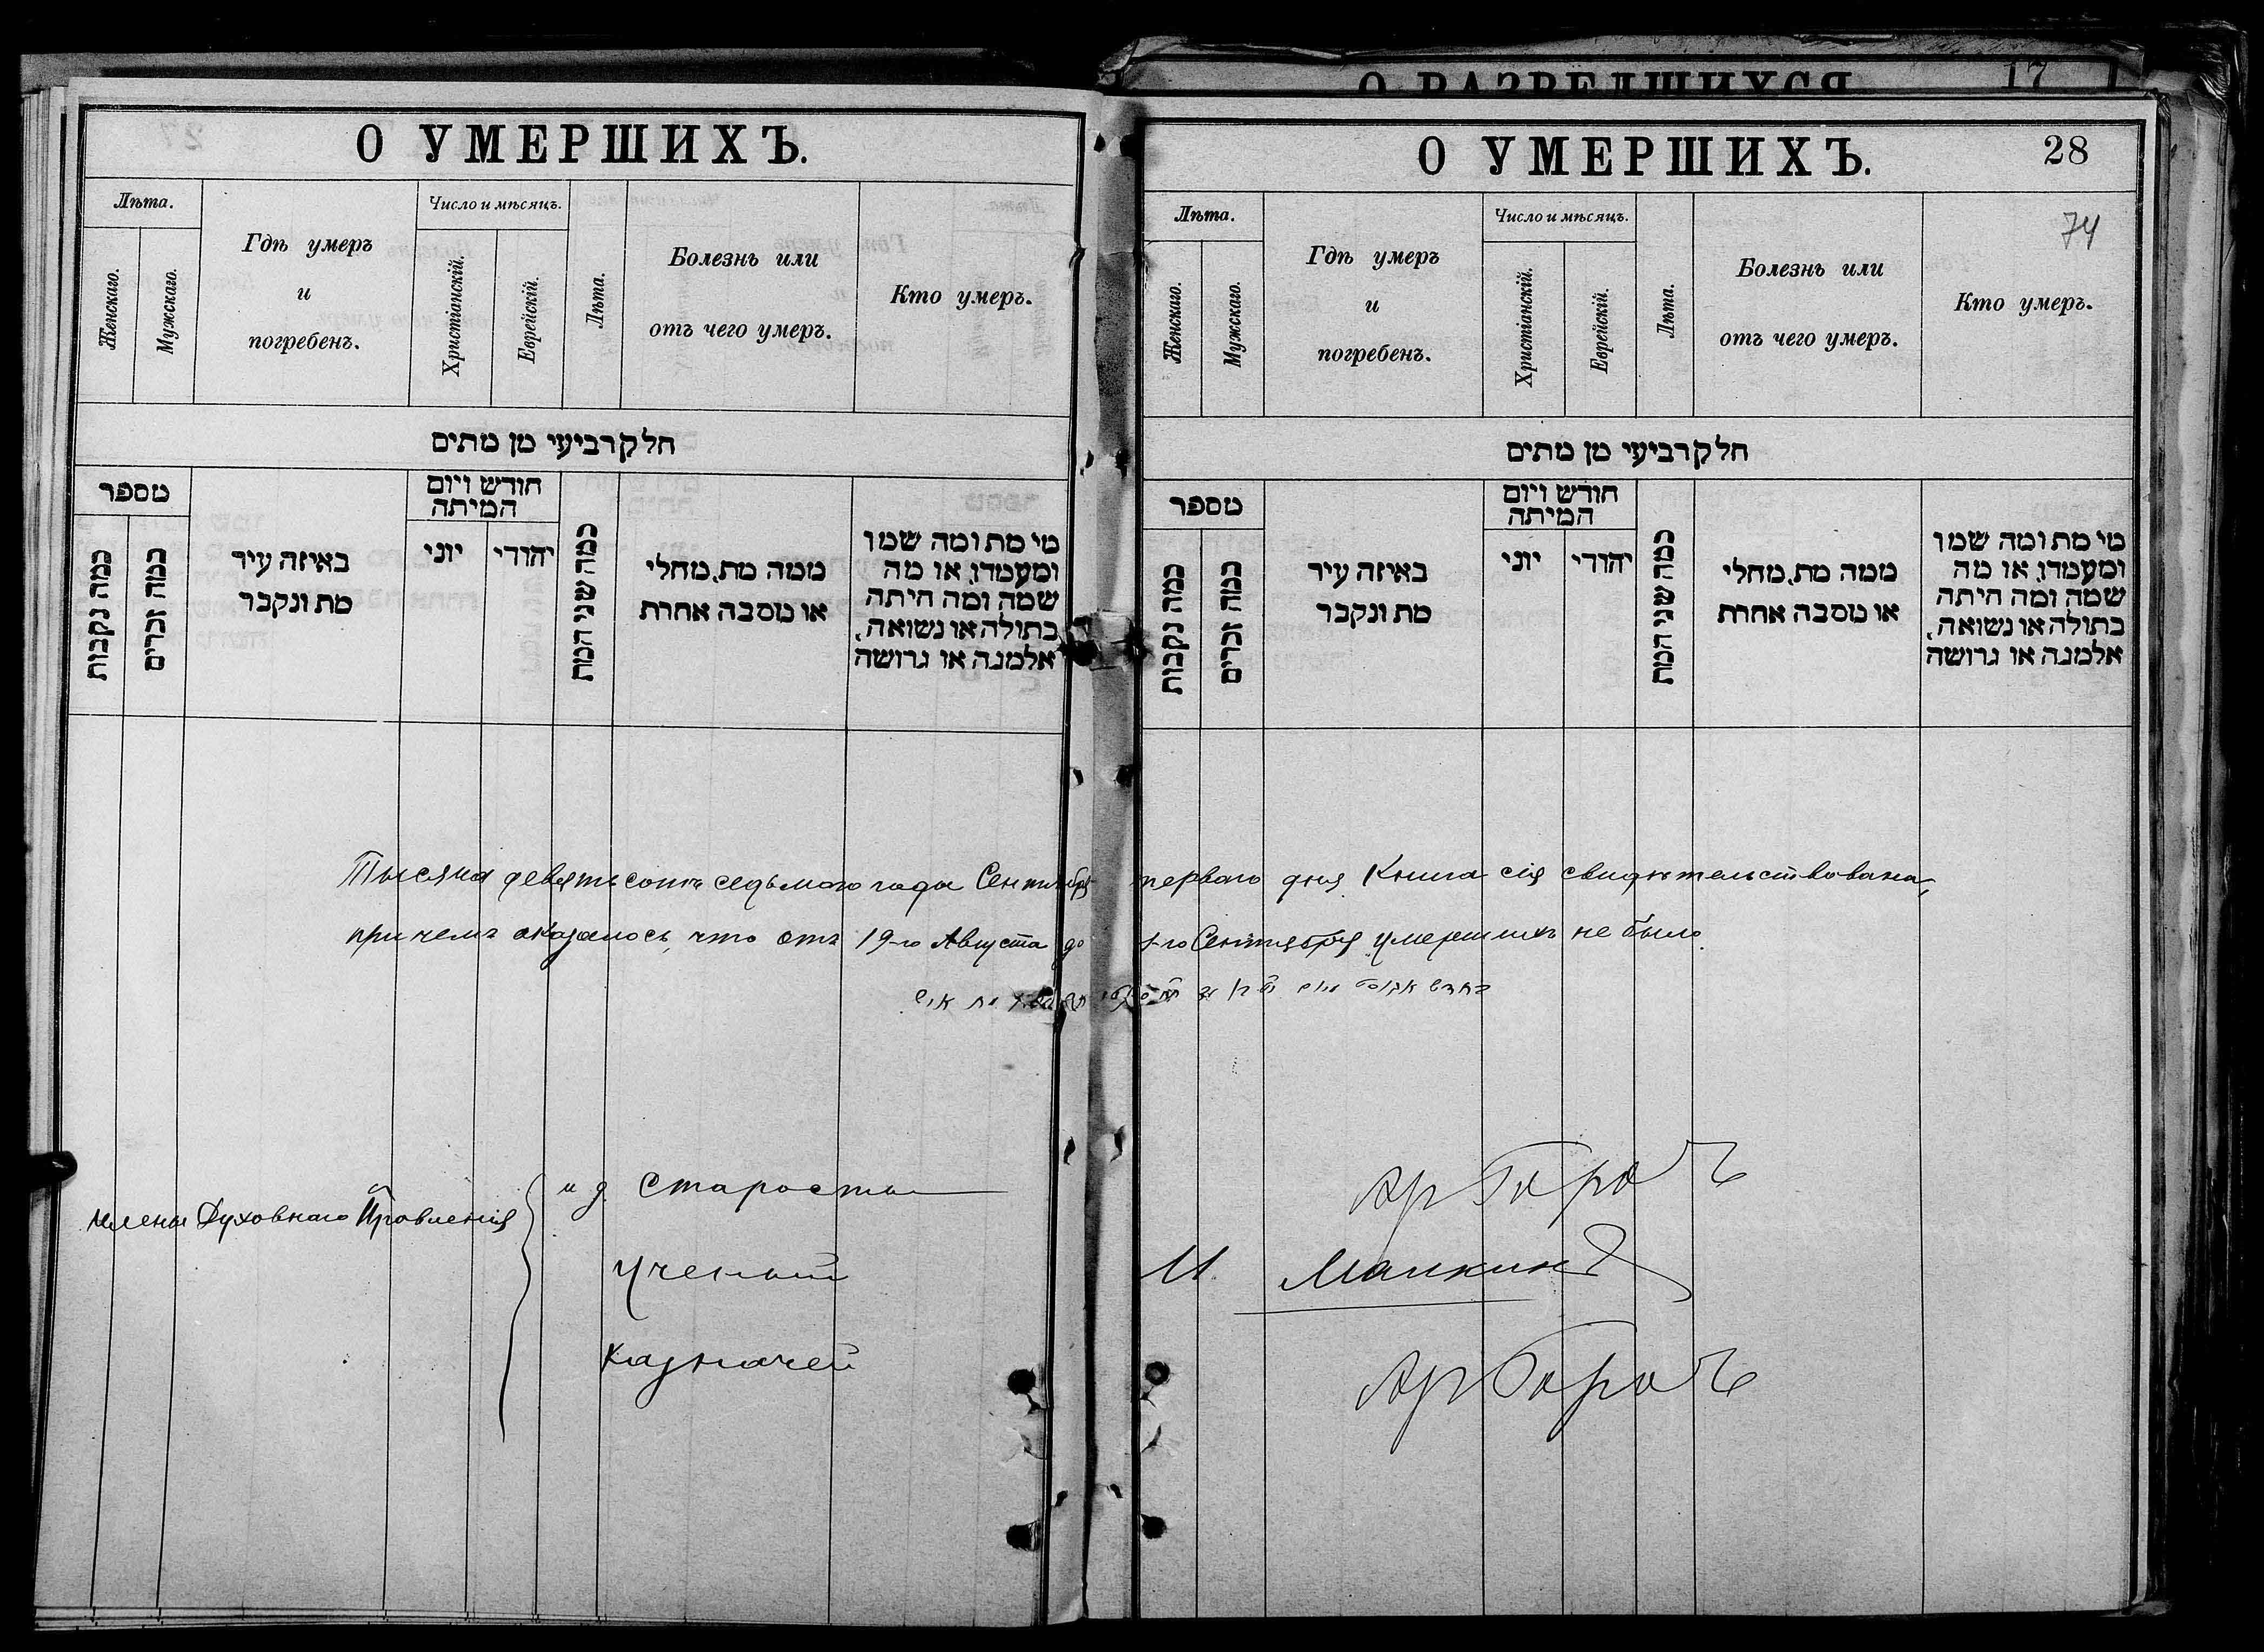 О РАЗВЕДШИХСЯ 17
О УМЕРШИХЪ.
Лѣта.
Женскаго.
Мужскаго.
Гдѣ умеръ
и
погребенъ.
Число и мѣсяцъ.
Христіанскій.
Еврейскій.
Лѣта.
Болезнь или
отъ чего умеръ.
Кто умеръ.
חלק רביעי מן מתים
מספר
כמה נקבות
כמה זכרים
באיזה עיר
מת ונקבר
חודש ויום
המיתה
יוני
יהודי
כמה שני המת
ממה מת, מחלי
או מסבה אחרת
מי מת ומה שמו
ומעמדו, או מה
שמה ומה היתה
בתולה או נשואה,
אלמנה או גרושה
О УМЕРШИХЪ.
28
74
Лѣта.
Женскаго.
Мужскаго.
Гдѣ умеръ
и
погребенъ.
Число и мѣсяцъ.
Христіанскій.
Еврейскій.
Лѣта.
Болезнь или
отъ чего умеръ.
Кто умеръ.
חלק רביעי מן מתים
מספר
כמה נקבות
כמה זכרים
באיזה עיר
מת ונקבר
חודש ויום
המיתה
יוני
יהודי
כמה שני המת
ממה מת, מחלי
או מסבה אחרת
מי מת ומה שמו
ומעמדו, או מה
שמה ומה היתה
בתולה או נשואה,
אלמנה או גרושה
Тысяча девятьсотъ седьмого года Сентября перваго дня Книга сія свидѣтельствована,
причемъ оказалось, что отъ 19-го Августа до 1-го Сентября умершихъ не было.
Члены Духовнаго Правленія
и д. Старосты
Ученый
И.
Казначей